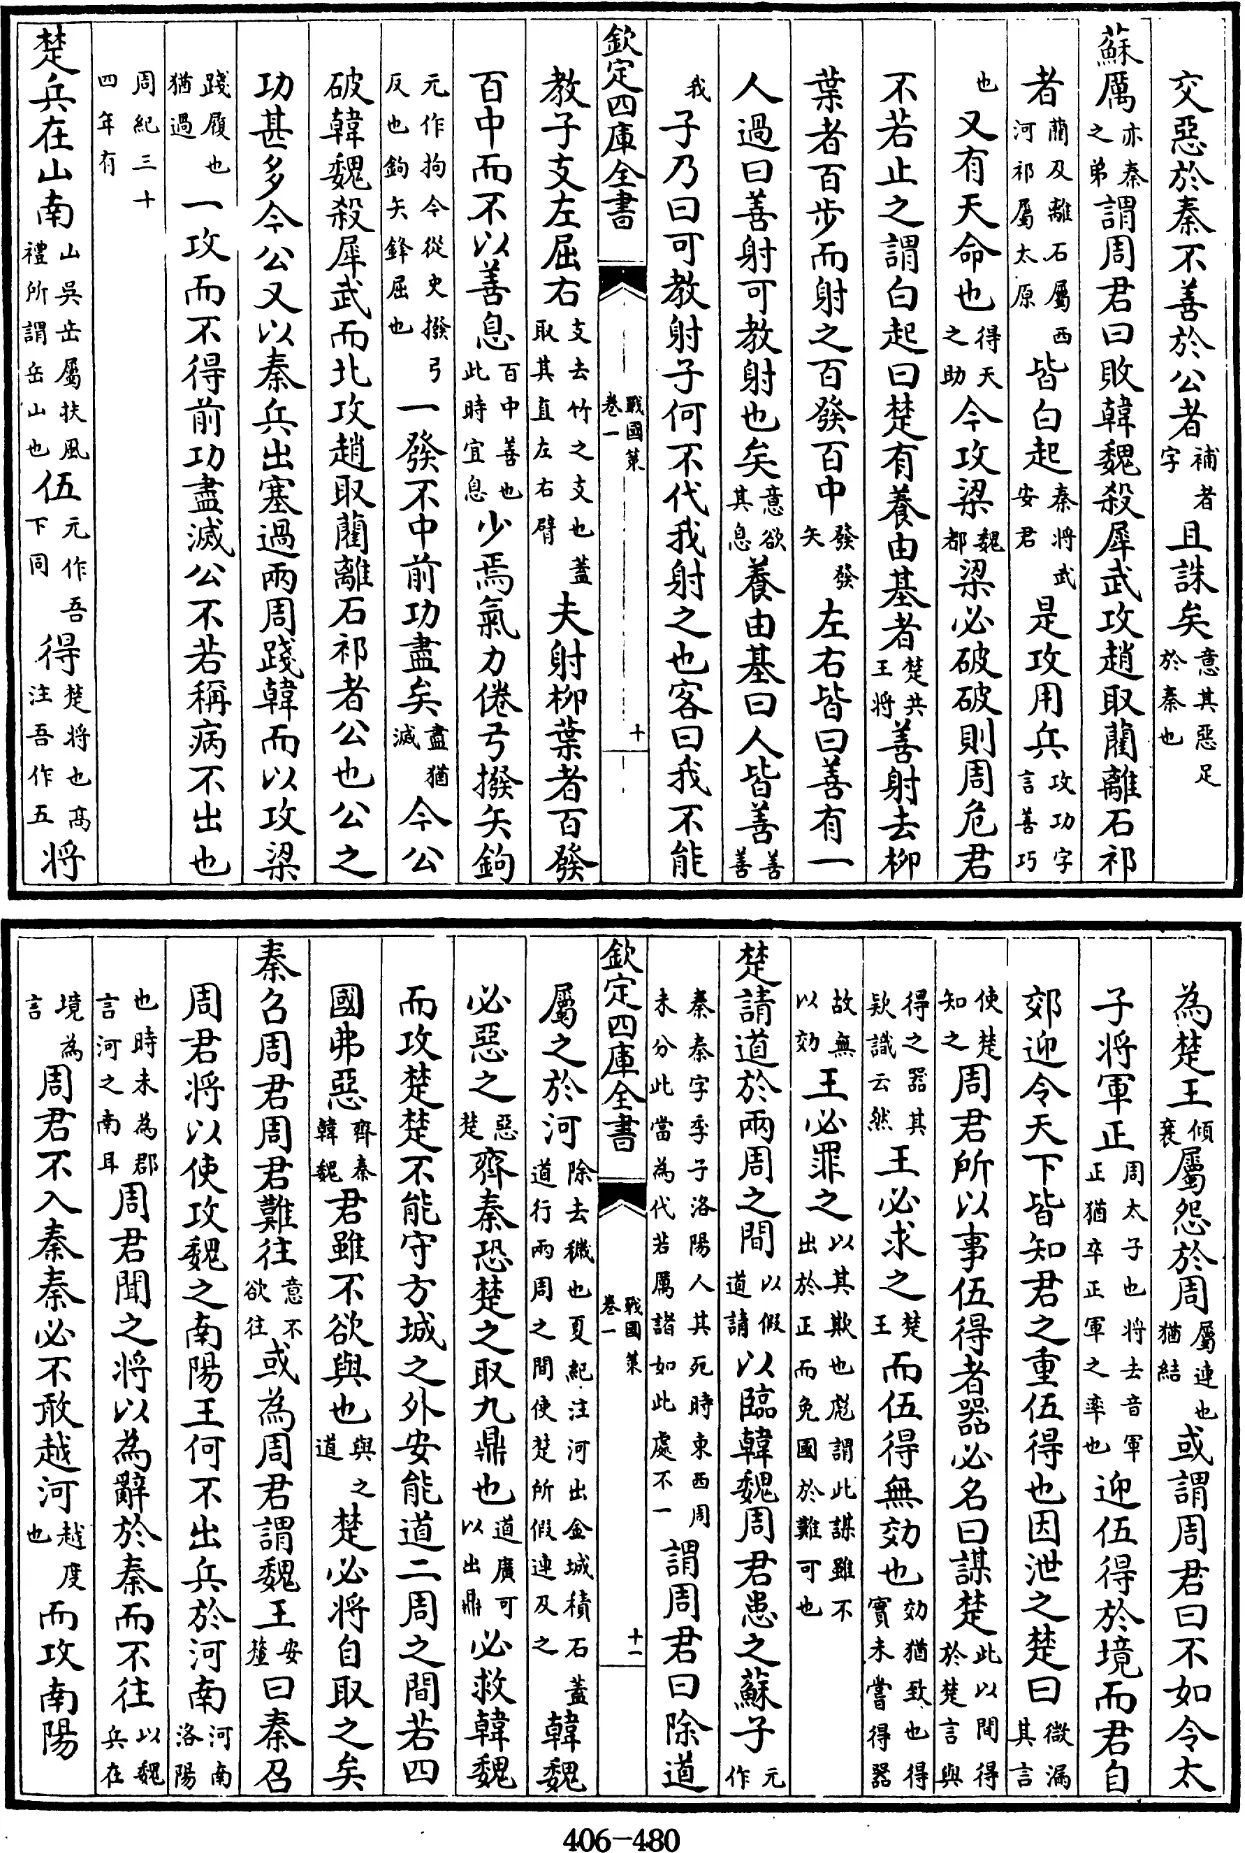 交惡於秦不善於公者補者字且誅矣意其惡足於秦也
蘇厲亦秦之弟謂周君曰敗韓魏殺犀武攻趙取藺離石祁
者藺及離石屬西河祁屬太原皆白起秦將武安君是攻用兵攻功字言善巧
也又有天命也得天之助今攻梁魏都梁必破破則周危君
不若止之謂白起曰楚有養由基者楚共王將善射去柳
葉者百步而射之百發百中發發矢左右皆曰善有一
人過曰善射可教射也矣意欲其息養由基曰人皆善善善
我子乃曰可教射子何不代我射之也客曰我不能
欽定四庫全書 戰國策卷一 十
教子支左屈右支去竹之支也蓋取其直左右臂夫射柳葉者百發
百中而不以善息百中善也此時宜息少焉氣力倦弓撥矢鉤
元作拘今從史撥弓反也鉤矢鋒屈也一發不中前功盡矣盡猶滅今公
破韓魏殺犀武而北攻趙取藺離石祁者公也公之
功甚多今公又以秦兵出塞過兩周踐韓而以攻梁
踐履也猶過一攻而不得前功盡滅公不若稱病不出也
周紀三十四年有
楚兵在山南山吳岳屬扶風禮所謂岳山也伍元作吾下同得楚將也高注吾作五將
為楚王傾襄屬怨於周屬連也猶結或謂周君曰不如令太
子將軍正周太子也將去音軍正猶卒正軍之率也迎伍得於境而君自
郊迎令天下皆知君之重伍得也因泄之楚曰微漏其言
使楚知之周君所以事伍得者器必名曰謀楚此以間得於楚言與
得之器其款識云然王必求之楚王而伍得無効也効猶致也得實未嘗得器
故無以効王必罪之以其欺也彪謂此謀雖不出於正而免國於難可也
楚請道於兩周之間以假道請以臨韓魏周君患之蘇子元作
秦秦字季子洛陽人其死時東西周未分此當為代若厲諸如此處不一謂周君曰除道
欽定四庫全書 戰國策卷一 十一
屬之於河除去穢也夏紀注河出金城積石蓋道行兩周之間使楚所假連及之韓魏
必惡之惡楚齊秦恐楚之取九鼎也道廣可以出鼎必救韓魏
而攻楚楚不能守方城之外安能道二周之間若四
國弗惡齊秦韓魏君雖不欲與也與之道楚必將自取之矣
秦召周君周君難往意不欲往或為周君謂魏王安釐曰秦召
周君將以使攻魏之南陽王何不出兵於河南河南洛陽
也時未為郡言河之南耳周君聞之將以為辭於秦而不往以魏兵在
境為言周君不入秦秦必不敢越河越度也而攻南陽
406-480